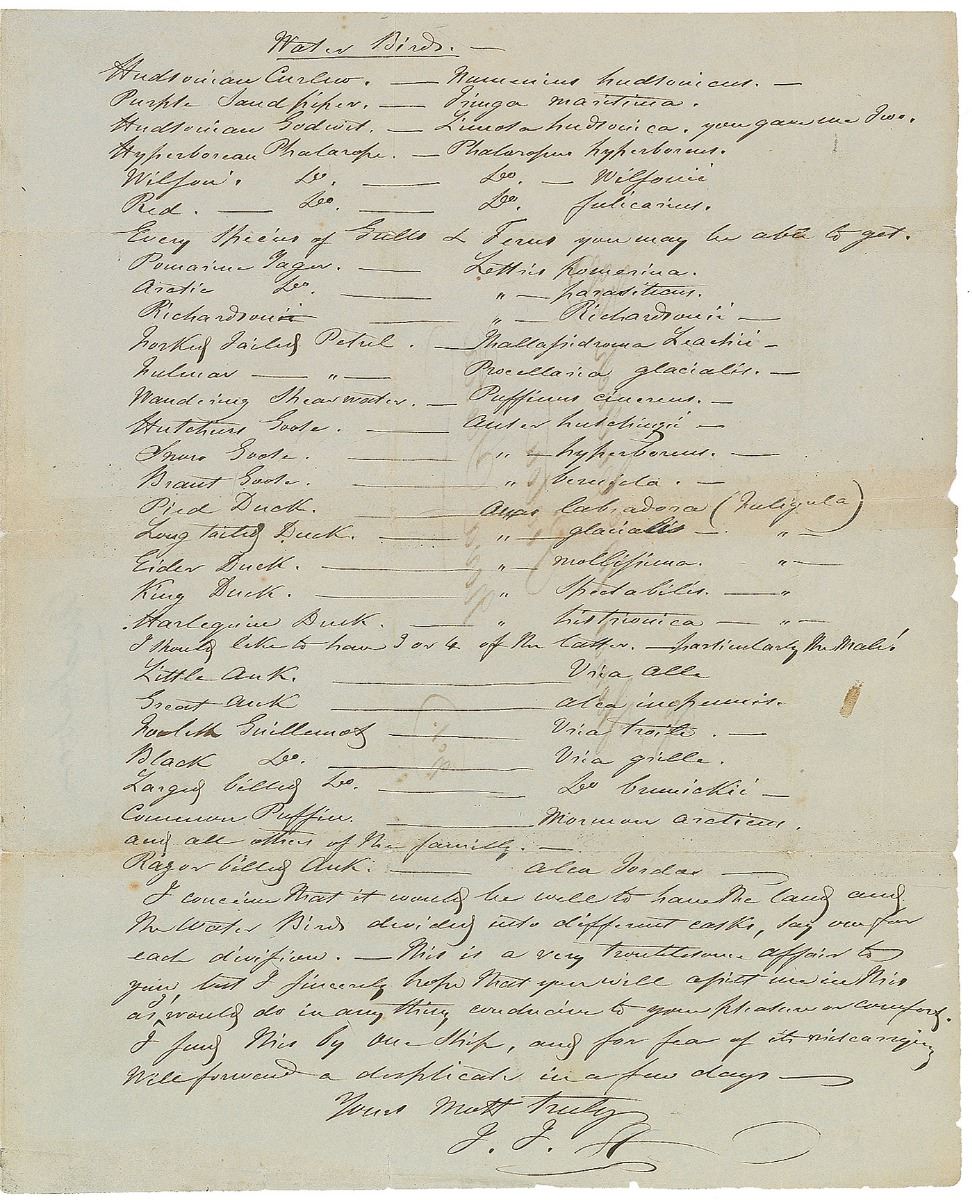 Water Birds. —
Hudsonian Curlew. — Numenius hudsonicus. —
Purple Sandpiper. — Tringa maritima.
Hudsonian Godwit. — Limosa hudsonica. you gave me two.
Hyperborean Phalarope. — Phalaropus hyperboreus.
Wilson's Do. — Do. — Wilsonii
Red. — Do. — Do. fulicarius.
Every Species of Gulls & Terns you may be able to get.
Pomarine Jager. — Lestris pomerina.
Arctic Do. — " — parasiticus.
Richardsonii — " — Richardsonii —
Forked tailed Petrel. — Thallasidroma Leachii —
Fulmar — " — Procellaria glacialis. —
Wandering Shearwater. — Puffinus cinereus. —
Hutchins Goose. — Anser hutchinsii —
Snow Goose. — " — hyperboreus. —
Brant Goose. — " bernicla. —
Pied Duck. — Anas labradora (Fuligula)
Long tailed Duck. — " — glacialis — " —
Eider Duck. — " — mollissima. " —
King Duck. — " Spectabilis. — "
Harlequin Duck. — " histrionica — " —
I should like to have 3 or 4 of the latter. — particularly the Male!
Little Auk. — Uria alle
Great Auk — alca impennis.
Foolish Guillemot — Uria troile. —
Black Do. — Uria grille.
Large billed Do. — Do brunickii —
Common Puffin. — Mormon arcticus.
and all others of the family. —
Razor billed Auk. — alca Tordas —
I conceive that it would be well to have the land and
the Water Birds divided into different casks, say one for
each division. — This is a very troublesome affair to
you but I sincerely hope that you will assist me in this
as I would do in any thing conducive to your pleasure or comfort.
I send this by one Ship, and for fear of its miscarrying
Will forward a duplicate in a few days —
Yours Most truly
J. J. A